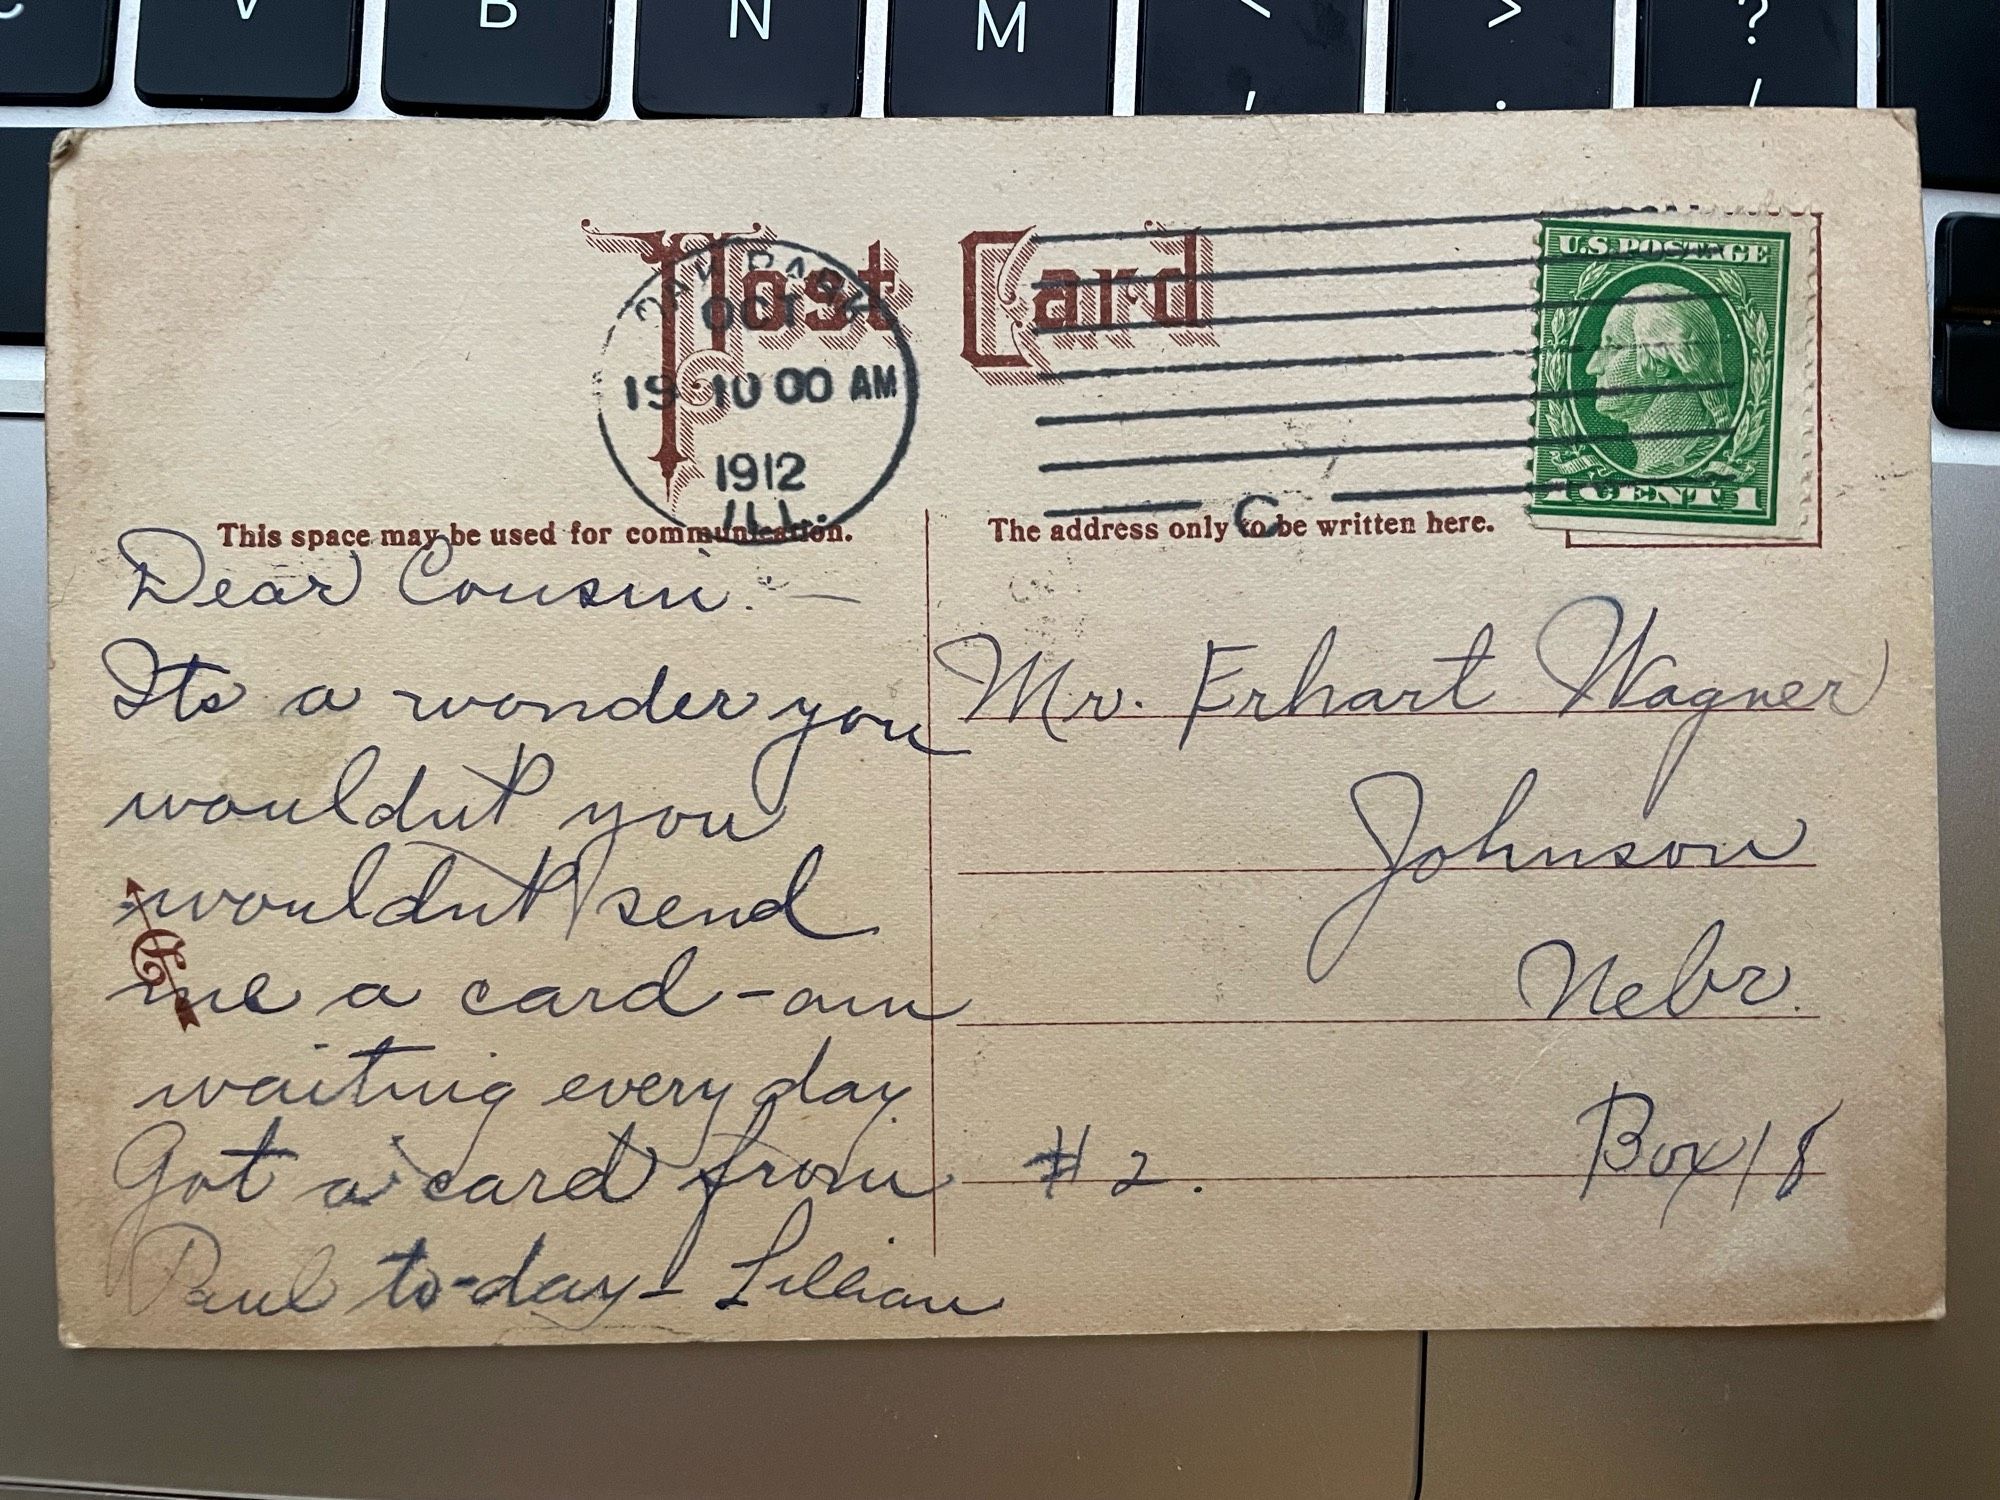 C V B N M < > ?
, . /
Post Card
OAK PARK
OCT
19 10 00 AM
1912
ILL.
C
U.S. POSTAGE
1 CENT 1
This space may be used for communication.
The address only to be written here.
Dear Cousin: —
Its a wonder you
wouldn't you
wouldn't send
me a card - am
waiting every day
Got a card from
Paul to-day - Lillian
Mr. Erhart Wagner
Johnson
Nebr.
# 2. Box 18